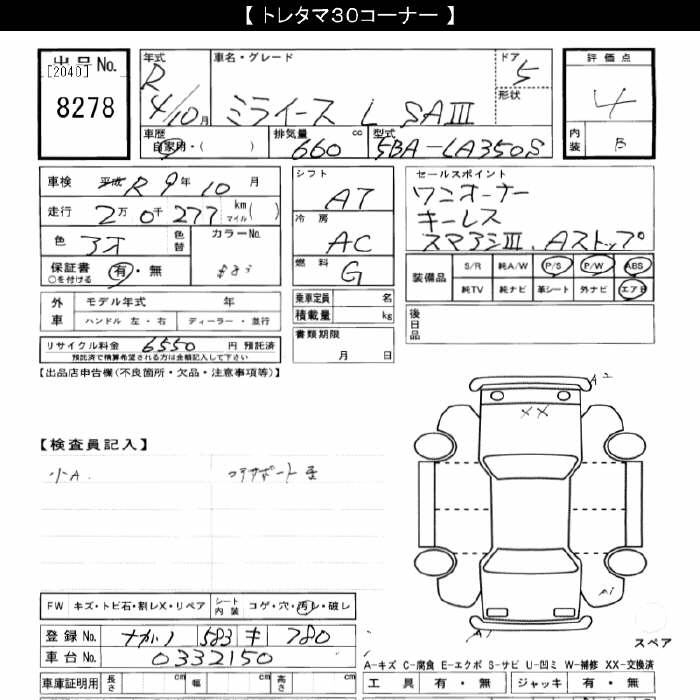 【 トレタマ30コーナー 】
出品No.
[2040]
8278
年式
R 4/10月
車名・グレード
ミライース L SAⅢ
ドア
5
形状
評価点
4
内装
B
車歴
自家用・( )
排気量
660 cc
型式
5BA-LA350S
車検
平成 R 9年 10月
走行
2万 0千 277 km マイル ( )
色
アオ
色替
カラーNo.
保証書 有・無
○を付ける
外車
モデル年式 年
ハンドル 左・右
ディーラー・並行
リサイクル料金 6550 円 預託済
預託済で積算希望される方は金額記入して下さい
シフト
AT
冷房
AC
燃料
G
乗車定員 名
積載量 kg
書類期限
月 日
セールスポイント
ワンオーナー
キーレス
スマアシⅢ、Aストップ
装備品
S/R 純A/W P/S P/W ABS
純TV 純ナビ 革シート 外ナビ エアB
後日品
【出品店申告欄(不良箇所・欠品・注意事項等)】
【検査員記入】
小A.
コアサポート
XX
A2
A1
A1
FW キズ・トビ石・割レX・リペア
シート内装 コゲ・穴・汚レ・破レ
登録No. ナガノ 583 キ 780
車台No. 0332150
車庫証明用 長さ cm 幅 cm 高さ cm
スペア
A-キズ C-腐食 E-エクボ S-サビ U-凹ミ W-補修 XX-交換済
工具 有・無 ジャッキ 有・無